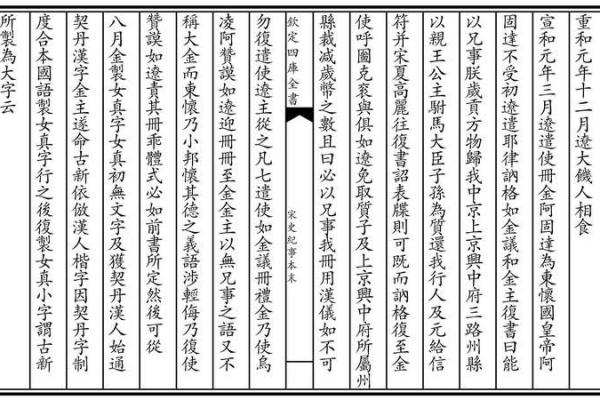 重和元年十二月遼大饑人相食
宣和元年三月遼遣使冊金阿固達為東懷國皇帝阿
固達不受初遼遣耶律訥格如金議和金主復書曰能
以兄事朕歲貢方物歸我中京上京興中府三路州縣
以親王公主駙馬大臣子孫為質還我行人及元給信
符并宋夏高麗往復書詔表牒則可既而訥格復至金
使呼圖克衮與俱如遼免取質子及上京興中府所屬州
縣裁減歲幣之數且曰必以兄事我冊用漢儀如不可
欽定四庫全書
宋史紀事本末
勿復遣使遼主從之凡七遣使如金議冊禮金乃使烏
凌阿贊謨如遼迎冊冊至金金主以無兄事之語又不
稱大金而東懷乃小邦懷其德之義語涉輕侮乃復使
贊謨如遼責其冊乖體式必如前書所定然後可從
八月金製女真字女真初無文字及獲契丹漢人始通
契丹漢字金主遂命古新依倣漢人楷字因契丹字制
度合本國語製女真字行之後復製女真小字謂古新
所製為大字云